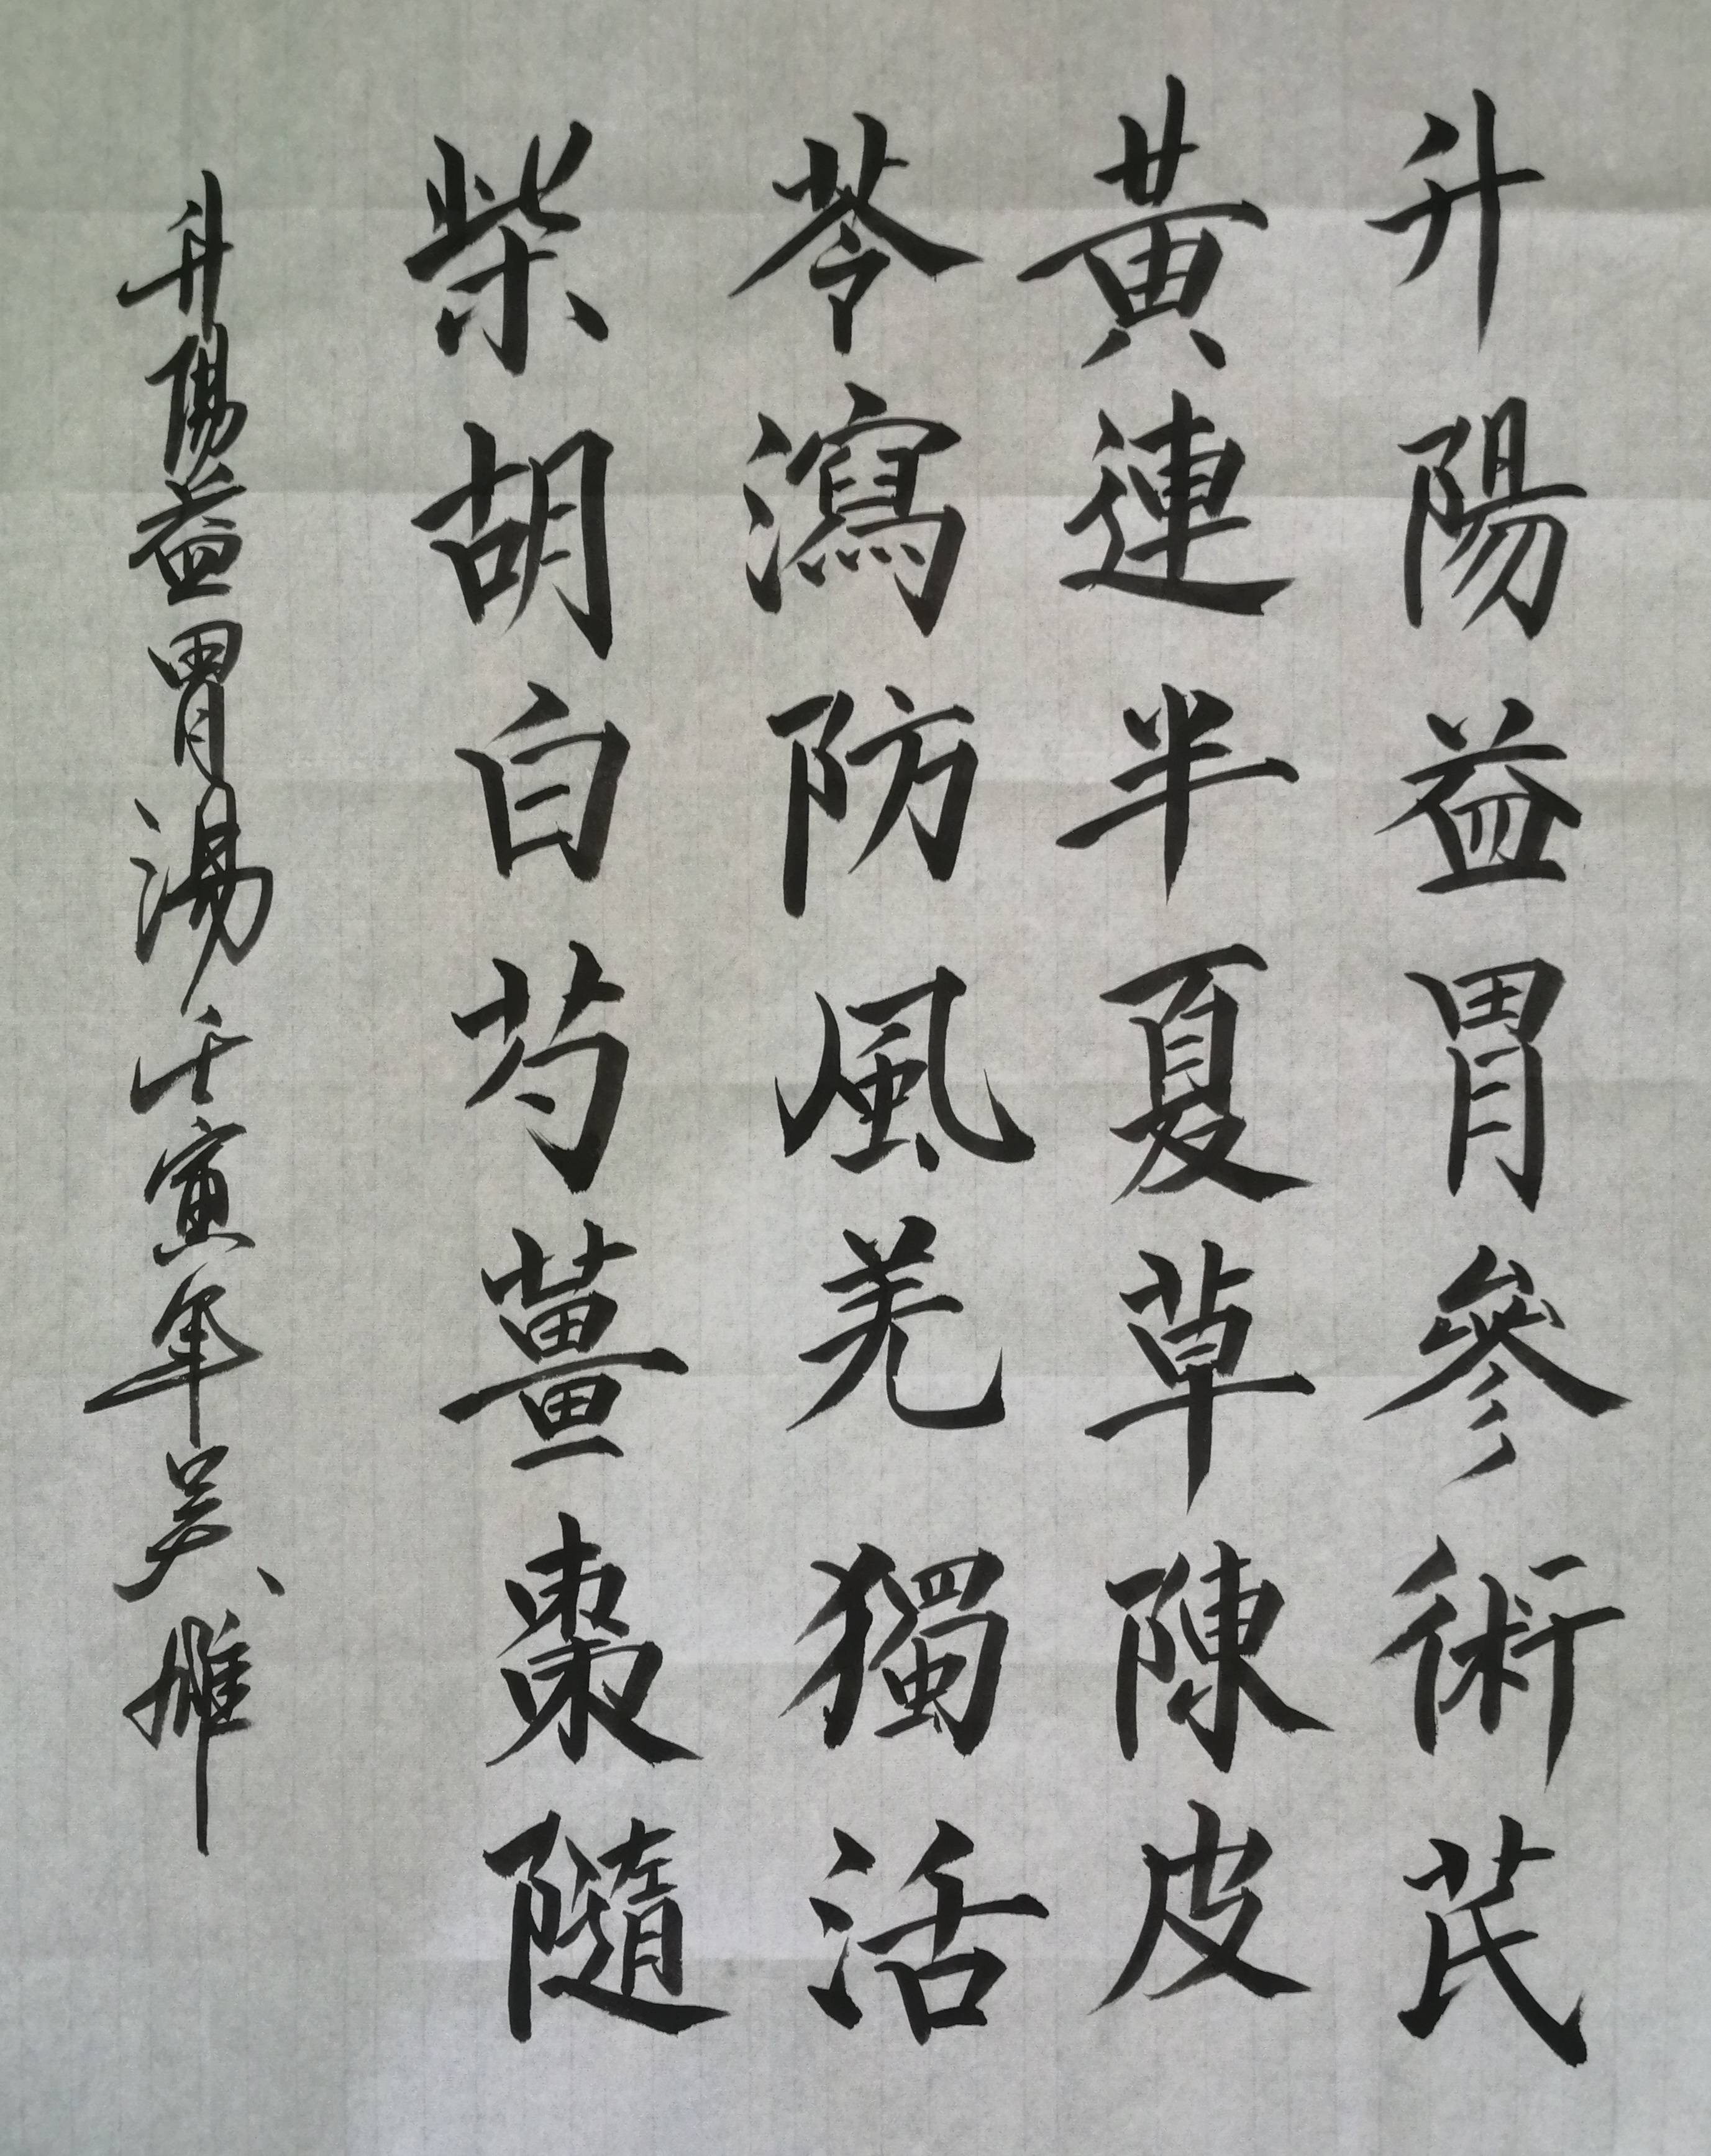 升陽益胃參術芪
黃連半夏草陳皮
苓瀉防風羌獨活
柴胡白芍薑棗隨
升陽益胃湯壬寅年吴雄